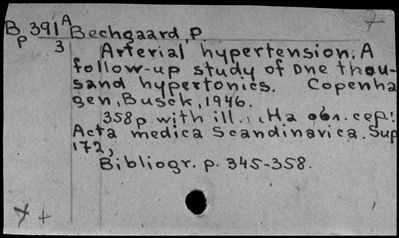 B 391 A Bechgaard, P
p 3
7
Arterial hypertension. A
follow-up study of one thou-
sand hypertonics. Copenha
gen, Busck, 1946.
358p. with ill., На обл. сер.:
Acta medica Scandinavica. Sup
172,
Bibliogr. p. 345-358.